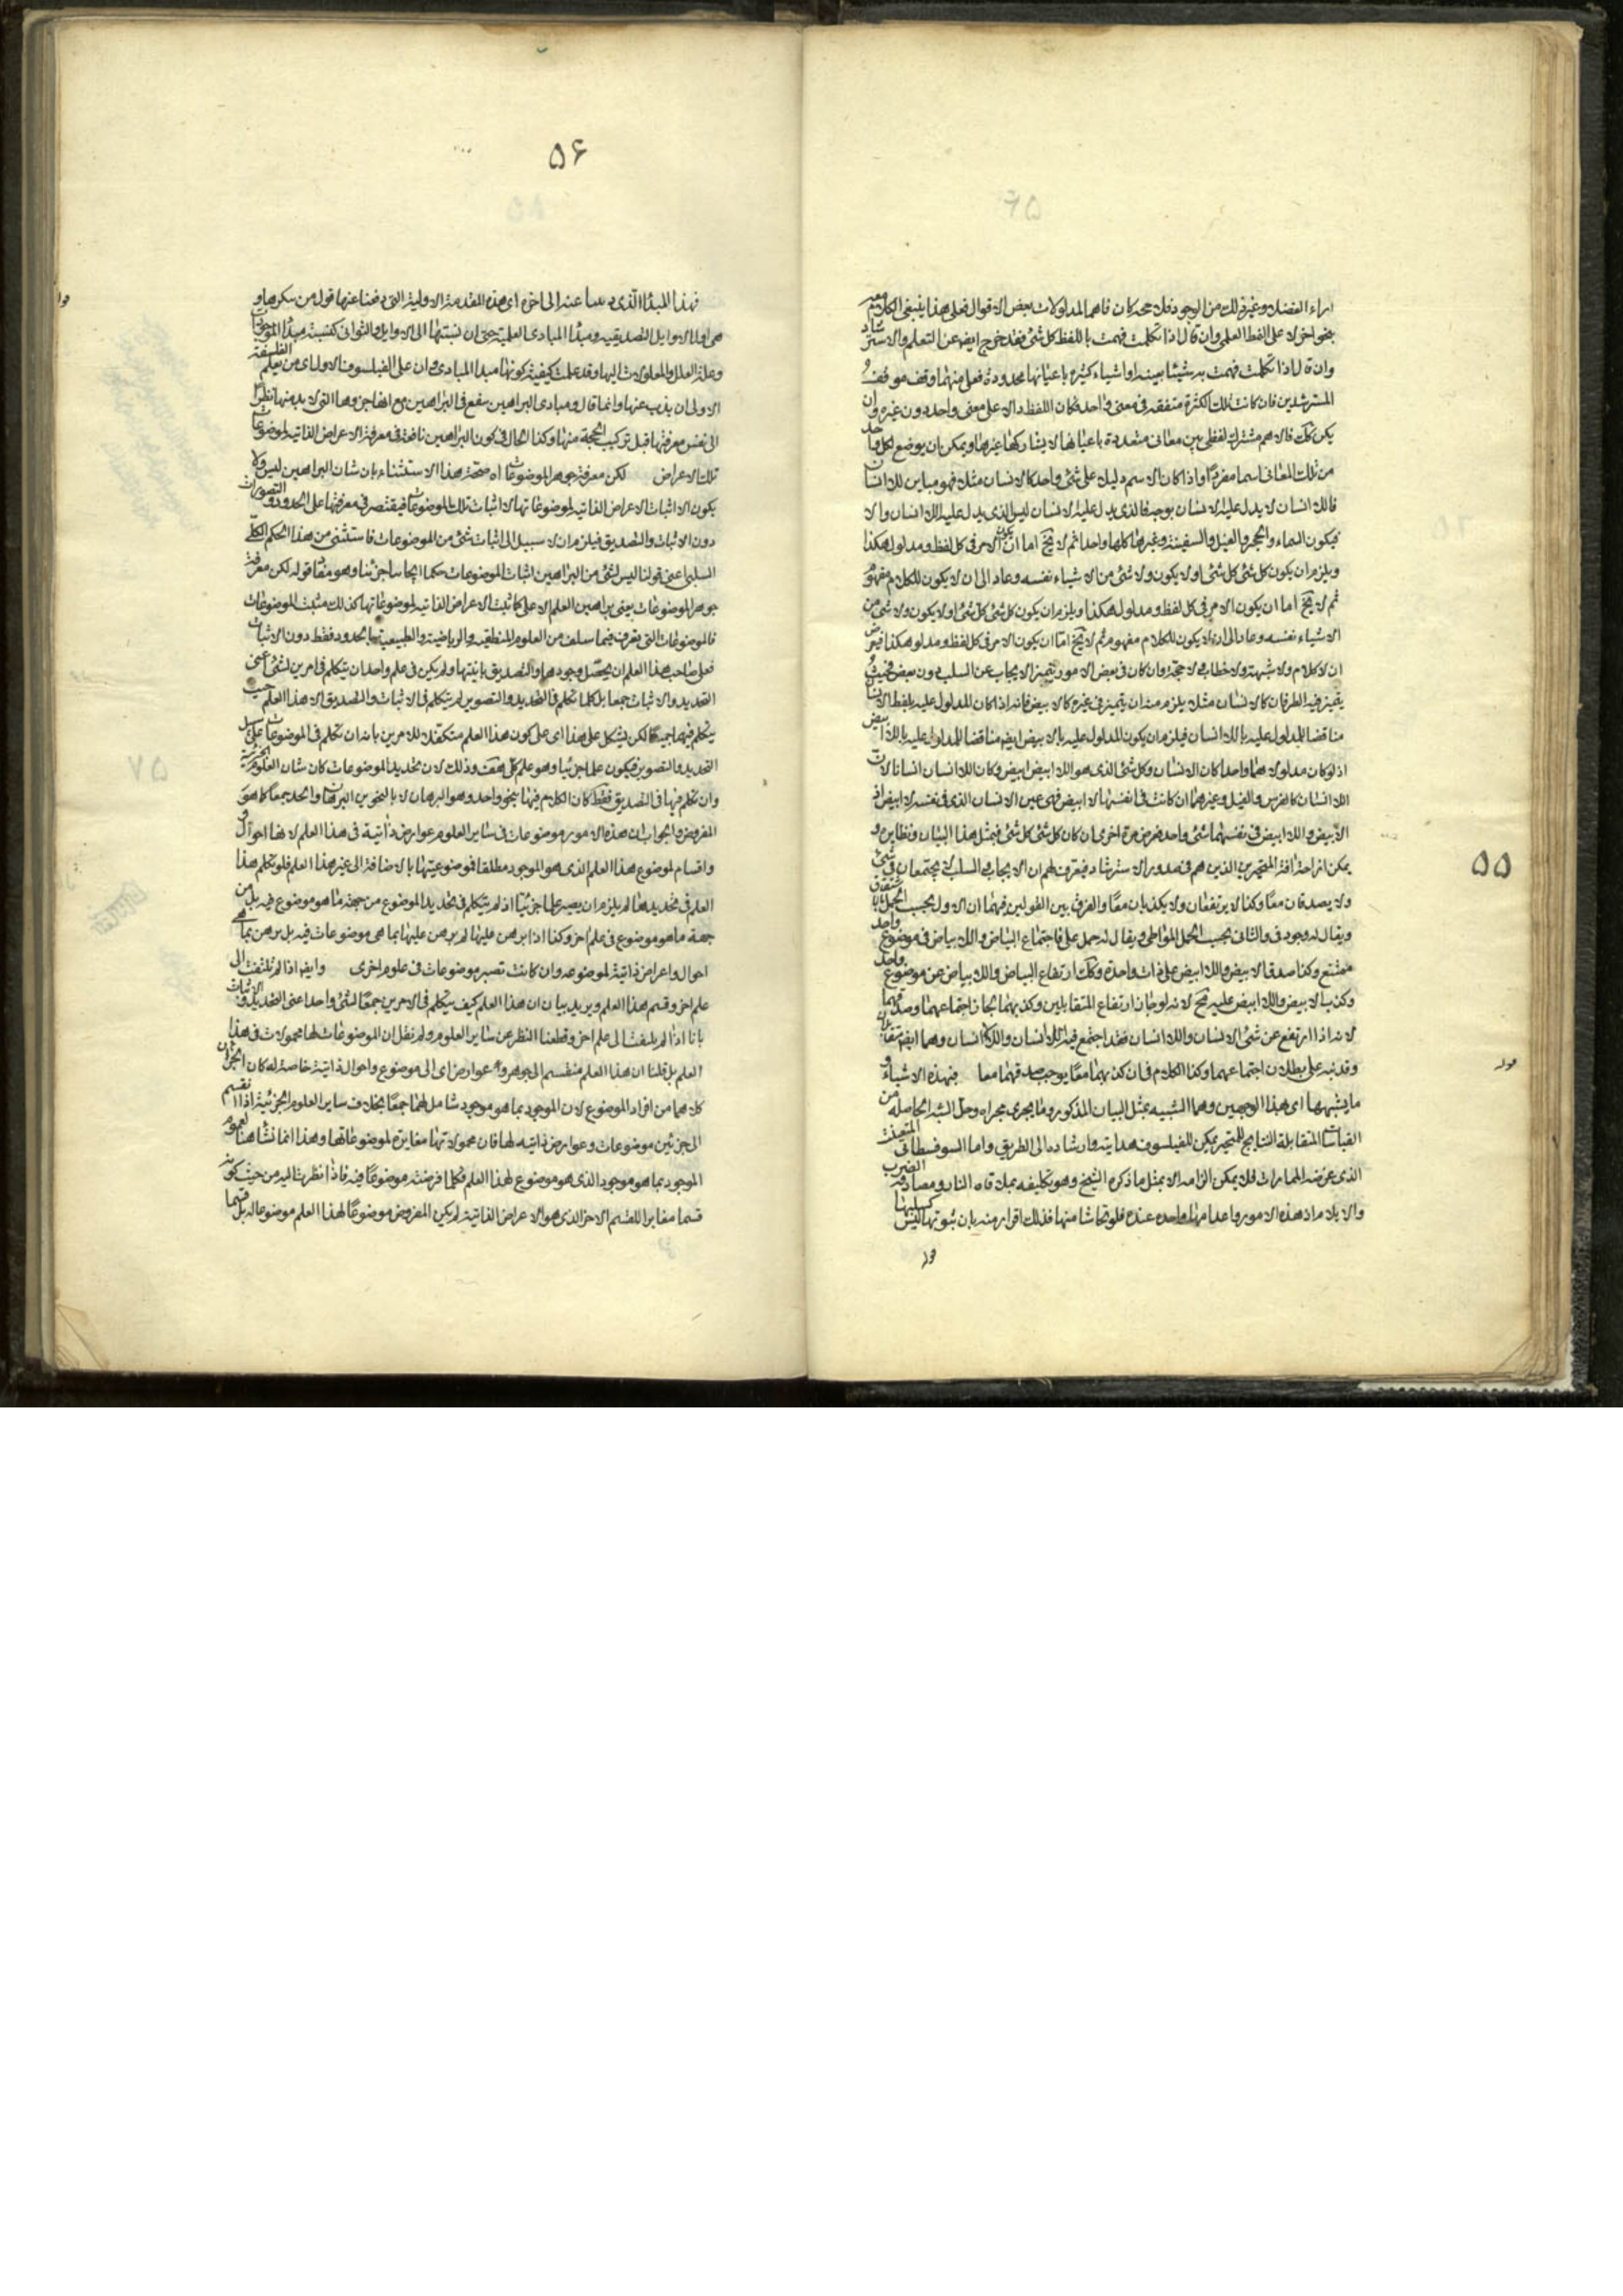 اراء الفضلاء وغير ذلك من الوجوه فلا محه كان فاهما لمدلولات بعض الاقوال فعلى هذا ينبغى الكلام معه
بنحو اخر لا على النمط العلمى وان قال اذا تكلمت فهمت باللفظ كل شئ فقد خرج ايض عن التعلم والاسترشاد
وان قال اذا تكلمت فهمت به شيئا بعينه او اشياء كثيرة باعيانها محدودة فعلى منهما وقف موقف
المسترشدين فان كانت تلك الكثرة متفقة فى معنى واحد فكان اللفظ دالا على معنى واحد دون غيره وان
يكن كك فالاسم مشترك لفظى بين معانى متعددة باعيانها لا يشاركها غيرها ويمكن بان يوضع لكل واحد
من تلك المعانى اسما مفردا واذا كان الاسم دليلا على شئ واحد كالانسان مثلا فهو مباين للاانسان
فاللاانسان لا يدل عليه الانسان بوجه فالذى يدل عليه الانسان ليس الذى يدل عليه اللاانسان والا
فيكون السماء والحجر والفيل والسفينة وغيرها كلها واحدا ثم لا يخ اما ان يكون الامر فى كل لفظ ومدلول هكذا
ويلزم ان يكون كل شئ كل شئ او لا يكون ولا شئ من الاشياء نفسه وعاد الى ان لا يكون للكلام مفهوم
ثم لا يخ اما ان يكون الامر فى كل لفظ ومدلول هكذا ويلزم ان يكون كل شئ كل شئ او لا يكون ولا شئ من
الاشياء نفسه وعاد الى ان لا يكون للكلام مفهوم ثم لا يخ اما ان يكون الامر فى كل لفظ ومدلول هكذا فيعرض
ان لا كلام ولا شبهة ولا خطاب ولا حجة وان كان فى بعض الامور يتميز الايجاب عن السلب دون بعض فحيث
يتميز فيه الطرفان كالانسان مثلا يلزم منه ان يتميز فى غيره كالابيض فانه اذا كان المدلول عليه بلفظ الانسان
مناقضا للمدلول عليه باللاانسان فيلزم ان يكون المدلول عليه بالابيض ايض مناقضا للمدلول عليه باللاابيض
اذ لو كان مدلولاهما واحدا كان الانسان وكل شئ الذى هو اللاابيض ابيض وكان اللاانسان انسانا لان
اللاانسان كالفرس والفيل وغيرهما ان كانت فى انفسها لا ابيض فهى عين الانسان الذى فى نفسه لا ابيض اذ
الابيض واللاابيض فى نفسهما شئ واحد فعرض مرة اخرى ان كان كل شئ كل شئ فبمثل هذا البيان ونظايره
يمكن ازاحة افة المتحيرين الذين هم فى صدد الاسترشاد فيعرف لهم ان الايجاب والسلب لا يجتمعان فى شئ
ولا يصدقان معا وكذا لا يرتفعان ولا يكذبان معا والفرق بين القولين فيهما ان الاول بحسب الحمل الاشتقاقى
ويقال له وجود فى والثانى بحسب الحمل المواطى ويقال له حمل على فاجتماع البياض واللابياض فى موضوع واحد
ممتنع وكذا صدق الابيض واللاابيض على ذات واحدة وكك ارتفاع البياض واللابياض عن موضوع واحد
وكذب الابيض واللاابيض عليه مح لانه لو جاز ارتفاع المتقابلين وكذبهما لجاز اجتماعهما وصدقهما
لانه اذا ارتفع عن شئ الانسان واللاانسان فقد اجتمع فيه اللاانسان واللالاانسان وهما ايض متقابلان
وقد نبه على بطلان اجتماعهما وكذا الكلام فى ان كذبهما معا يوجب صدقهما معا فهذه الاشياء و
ما يشبهها اى هذا الوجهين وهما الشبيه بمثل البيان المذكور وما يجرى مجراه وحل الشبه الحاصله من
القياسات المتقابلة النتايج للمتحير يمكن للفيلسوف هدايته وارشاده الى الطريق واما السوفسطائى المتعنت
الذى غرضه المماراة فلا يمكن الزامه الا بمثل ما ذكره الشيخ وهو تكليفه بملاقاه النار ومصادفة الضرب
والايلام اذ هذه الامور واعدامها واحده عنده فلو تحاشا منها فذلك اقرار منه بان ثبوتها ليس كسلبها
قوله
۵۵
قوله
۵۶
فهذا المبدأ الذى ذببنا عنه الى اخره اى هذه المقدمة الاولية التى دفعنا عنها قول من ينكرها و
هى اول الاوايل التصديقيه ومبدأ المبادى العلمية حتى ان نسبتها الى الاوايل والثوانى كنسبة مبدأ الموجودات
وعلة العلل والمعلولات اليها وقد علمت كيفية كونها مبدأ المبادى وان على الفيلسوف الاول اى من يعلم الفلسفة
الاولى ان يذب عنها وانما قال ومبادى البراهين ينفع فى البراهين مع انها جزوها التى لا بد منها نظرا
الى نفس معرفتها قبل تركيب الحجة منها وكذا الحال فى كون البراهين نافعة فى معرفة الاعراض الذاتيه لموضوعات
تلك الاعراض لكن معرفة جوهر الموضوعات اه صحة هذا الاستثناء بان شان البراهين ليس ولا
يكون الا اثبات الاعراض الذاتيه لموضوعاتها لا اثبات تلك الموضوعات فيقتصر فى معرفتها على الحدود والتصورات
دون الاثبات والتصديق فيلزم ان لا سبيل الى اثبات شئ من الموضوعات فاستثنى من هذا الحكم الكلى
السلبى اعنى قولنا ليس لشئ من البراهين اثبات الموضوعات حكما ايجابيا جزئيا وهو مفاد قوله لكن معرفة
جوهر الموضوعات يعنى براهين العلم الاعلى كما تثبت الاعراض الذاتيه لموضوعاتها كذلك مثبت الموضوعات
فالموضوعات التى يعرف فيما سلف من العلوم المنطقيه والرياضية والطبيعية بالحدود فقط دون الاثبات
فعلى صاحب هذا العلم ان يحصل وجودها والتصديق بانيتها ولم يكن فى علم واحد ان يتكلم فى امرين لشئ اعنى
التحديد والاثبات جميعا بل كلما تكلم فى التحديد والتصوير لم يتكلم فى الاثبات والتصديق الا هذا العلم حيث
يتكلم فيهما جميعا لكن يشكل على هذا اى على كون هذا العلم متكفلا للامرين بانه ان تكلم فى الموضوعات على سبيل
التحديد والتصوير فيكون علما جزئيا وهو علم كلى هف وذلك لان تحديد الموضوعات كان شان العلوم الجزئية
وان تكلم فيها فى التصديق فقط كان الكلام فيها بنحو واحد وهو البرهان لا بالنحوين البرهان والحد جميعا كما هو
المفروض والجواب ان هذه الامور موضوعات فى ساير العلوم وعوارض ذاتية فى هذا العلم لانها احوال و
واقسام لموضوع هذا العلم الذى هو الموجود مطلقا فموضوعيتها بالاضافة الى غير هذا العلم فلو تكلم هذا
العلم فى تحديدها لم يلزم ان يصير علما جزئيا اذ لم يتكلم فى تحديد الموضوع من جهة ما هو موضوع فيه بل من
جهة ما هو موضوع فى علم اخر وكذا اذا برهن عليها لم يبرهن عليها بما هى موضوعات فيه بل برهن بما هى
احوال واعراض ذاتية لموضوعه وان كانت تصير موضوعات فى علوم اخرى وايض اذا لم تلتفت الى
علم اخر وقسم هذا العلم ويريد بيان ان هذا العلم كيف يتكلم فى الامرين جميعا لشئ واحد اعنى التحديد والاثبات
بانا اذا لم يلتفت الى علم اخر وقطعنا النظر عن ساير العلوم ولم نقل ان الموضوعات لها محمولات فى هذا
العلم بل قلنا ان هذا العلم منقسم الى جوهر وعوارض اى الى موضوع واحوال ذاتية خاصة له كان الجزءان
كلاهما من افراد الموضوع لان الموجود بما هو موجود شامل لهما جميعا بخلاف ساير العلوم الجزئية اذا انقسم
الى جزئين موضوعات وعوارض ذاتيه لها فان محمولاتها مغايرة لموضوعاتها وهذا انما نشا هنا لعموم
الموجود بما هو موجود الذى هو موضوع لهذا العلم فكلما فرضته موضوعا فيه فاذا نظرت اليه من حيث كونه
قسما مغايرا للقسم الاخر الذى هو الاعراض الذاتية لم يكن المفروض موضوعا لهذا العلم موضوعا له بل قسما
قوله